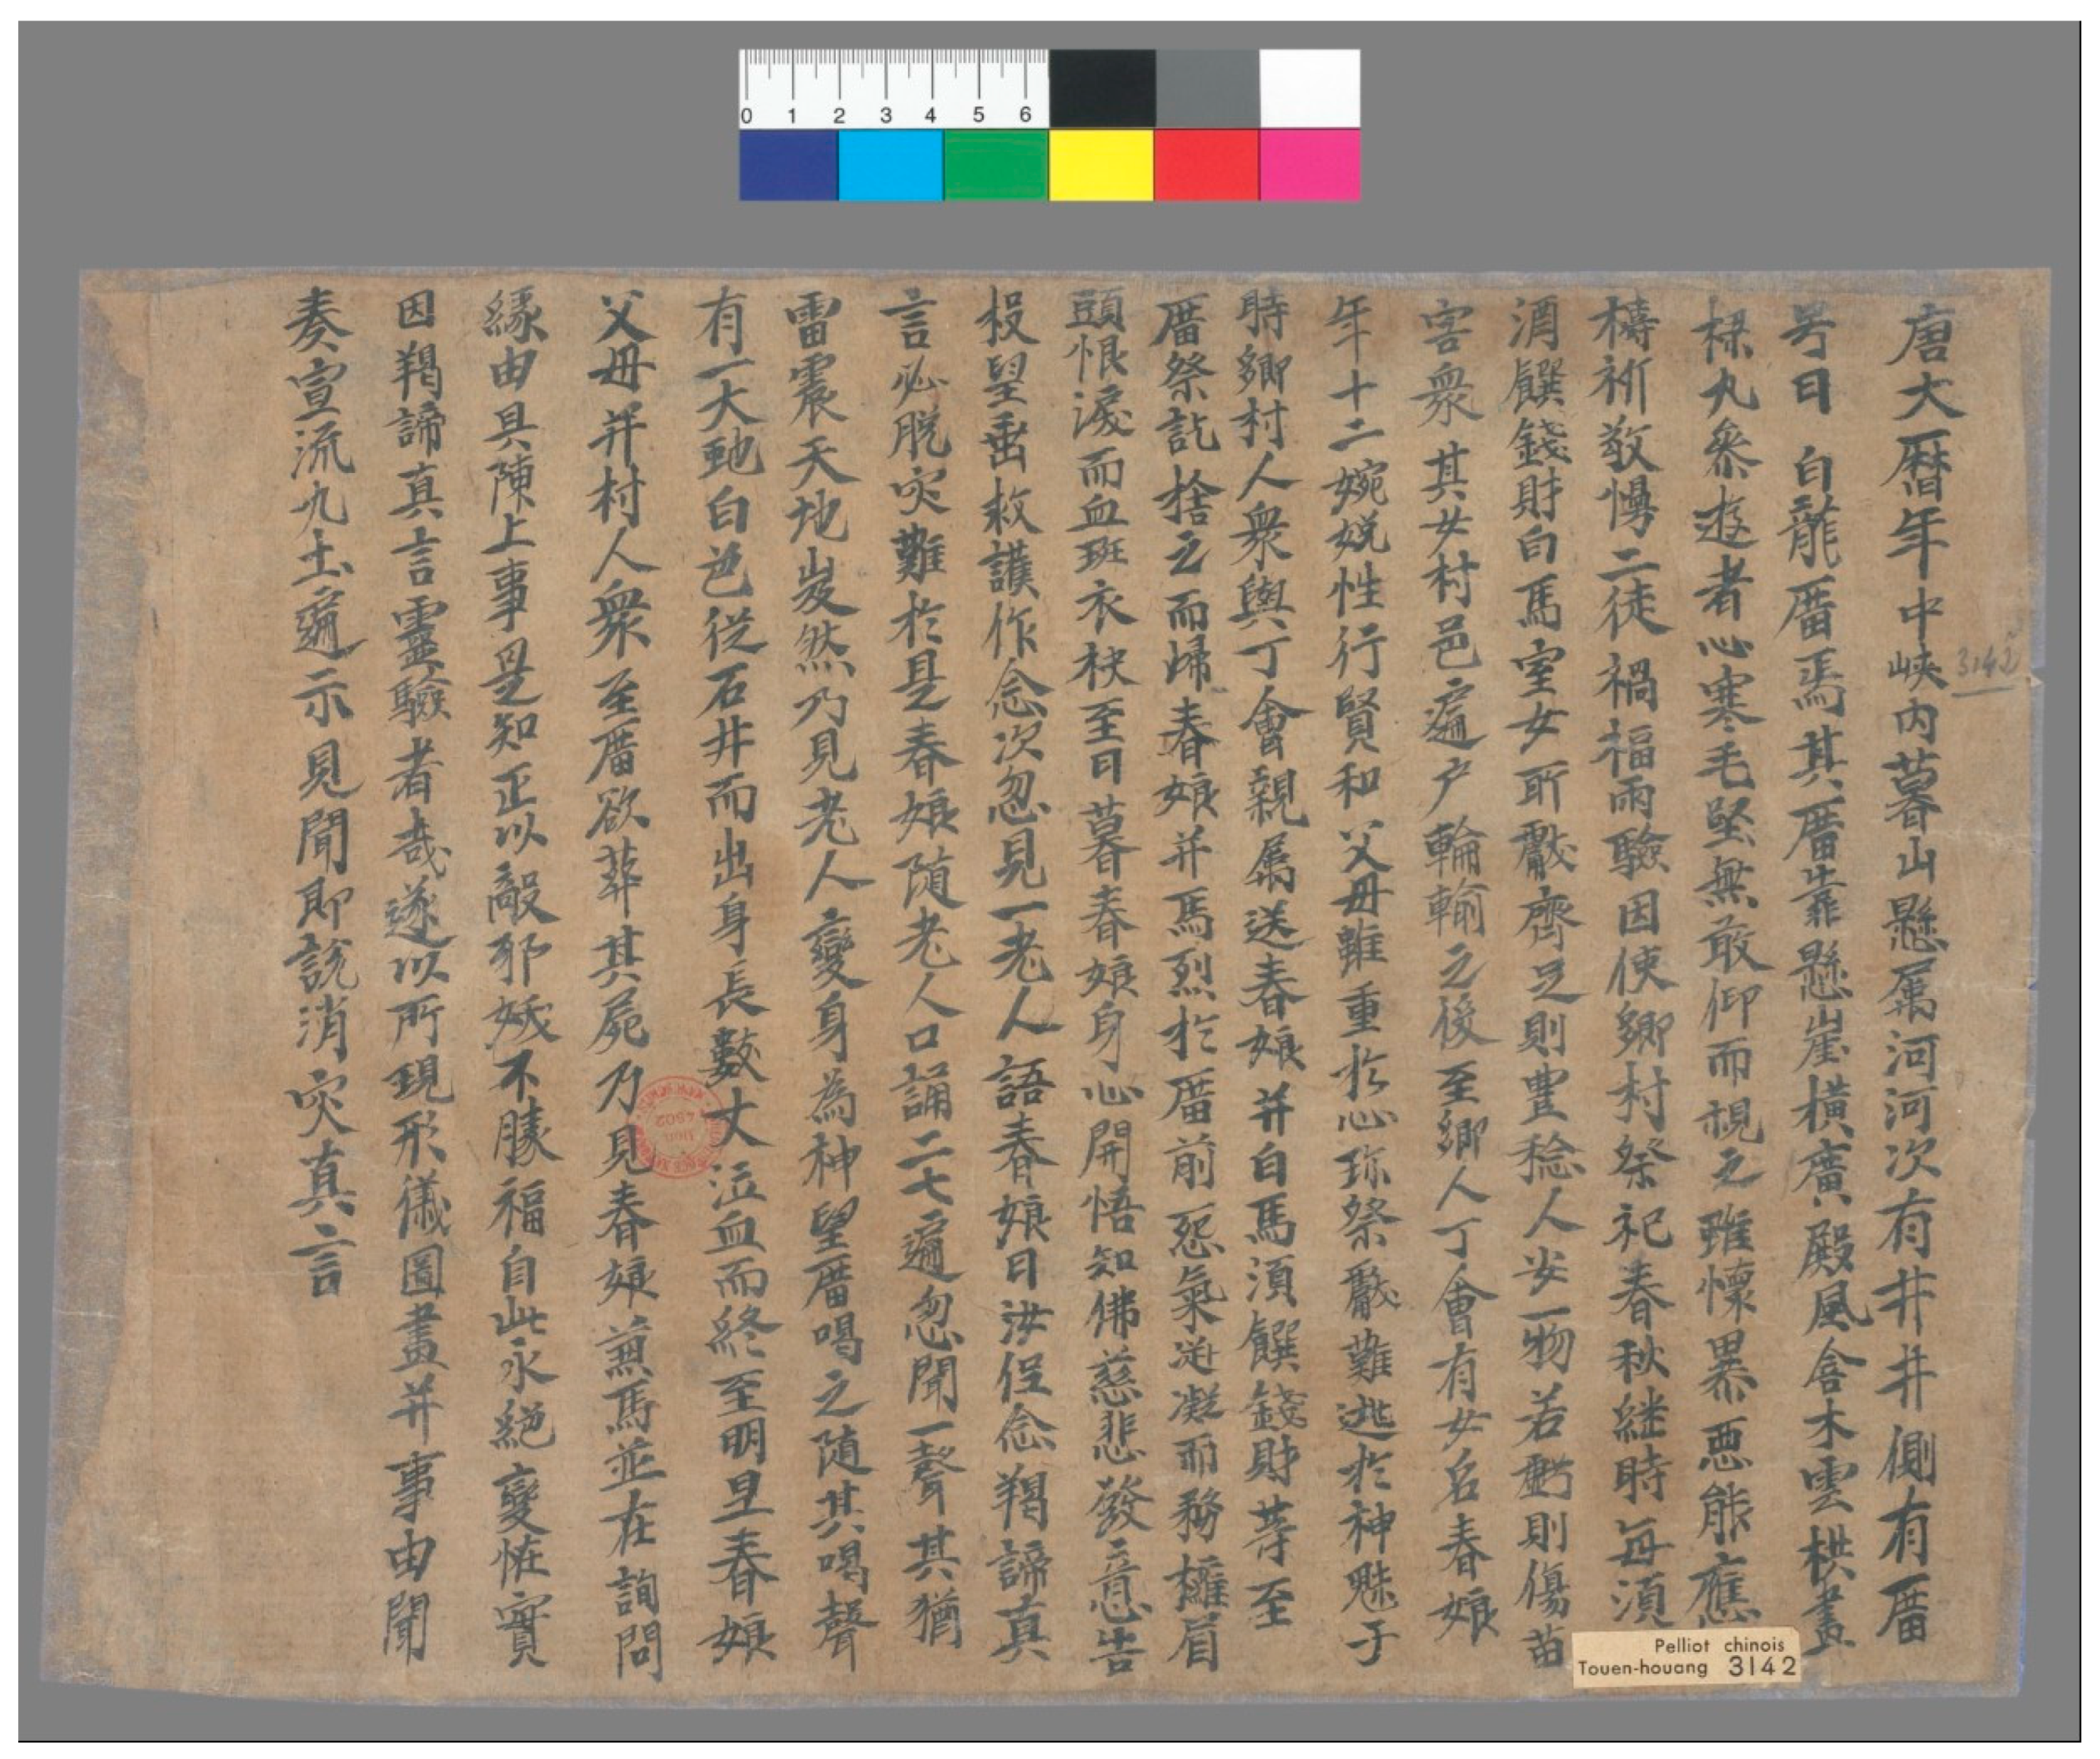 唐大曆年中峽内暮山懸属河河次有井井側有廟
号曰 白龍廟焉其廟靠懸崖横廣殿風含木雲栱畫
樑丸条遊者心寒毛竪無敢仰而視之雖懷異惡能應
禱祈敬慢二徒禍福雨驗因使鄉村祭祀春秋継時每須
酒饌錢財白馬室女所獻齊足則豊稔人安一物若虧則傷苗
害衆其女村邑遍户輪輸之後至鄉人丁會有女名春娘
年十二婉娩性行賢和父母雖重於心珎祭獻難逃於神魅于
時鄉村人衆與丁會親属送春娘并白馬須饌錢財等至
廟祭訖捨之而㱕春娘并馬烈於廟前怨氣迸凝而務攡眉
頭恨淚而血班衣袂至日暮春娘身心開悟知佛慈悲發意告
投望垂救護作念次忽見一老人語春娘曰汝但念羯諦真
言必脱灾難於是春娘随老人口誦二七遍忽聞一聲其猶
雷震天地岌然乃見老人變身為神望廟喝之随其喝聲
有一大虵白色従石井而出身長數丈泣血而終至明旦春娘
父母并村人衆至廟欲葬其屍乃見春娘兼馬並在詢問
縁由具陳上事是知正以敵邪妖不勝福自此永絶變恠實
因羯諦真言靈驗者哉遂以所現形儀圖畫并事由聞
奏宣流九土遍示見聞即說消灾真言
3142
Pelliot chinois
Touen-houang 3142
0 1 2 3 4 5 6